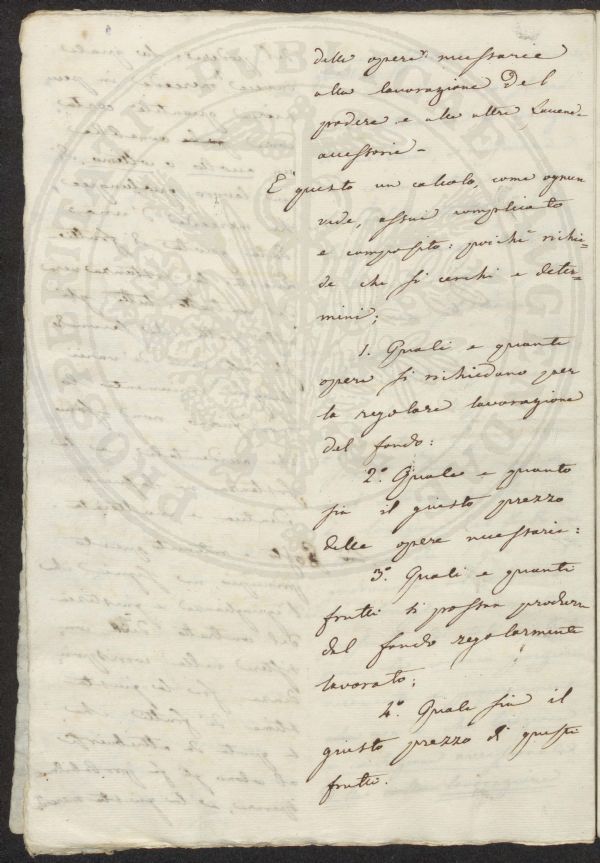 delle opere necessarie
alla lavorazione del
podere e alle altre
accessorie -
E' questo un calcolo, come ognun
vede, assai complicato
e composito: poichè richie-
de che si cerchi e deter-
mini;
1. Quali e quante
opere si richiedano per
la regolare lavorazione
del fondo:
2.° Quale e quanto
sia il giusto prezzo
delle opere necessarie:
3.° Quali e quanti
frutti si possan produrre
dal fondo regolarmente
lavorato;
4.° Quale sia il
giusto prezzo di questi
frutti.